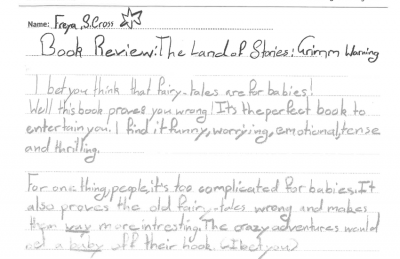 Name: Freya, S. Cross
Book Review: The Land of Stories: Grimm Warning
I bet you think that fairy-tales are for babies!
Well this book proves you wrong! Its the perfect book to
entertain you. I find it funny, worrying, emotional, tense
and thrilling.
For one thing, people, it's too complicated for babies. It
also proves the old fairy-tales wrong and makes
them way more intresting. The crazy adventures would
get a baby off their hook. (I bet you)